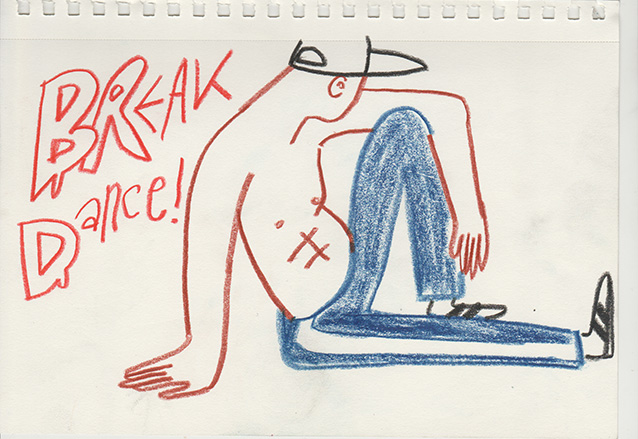 BREAK
Dance!